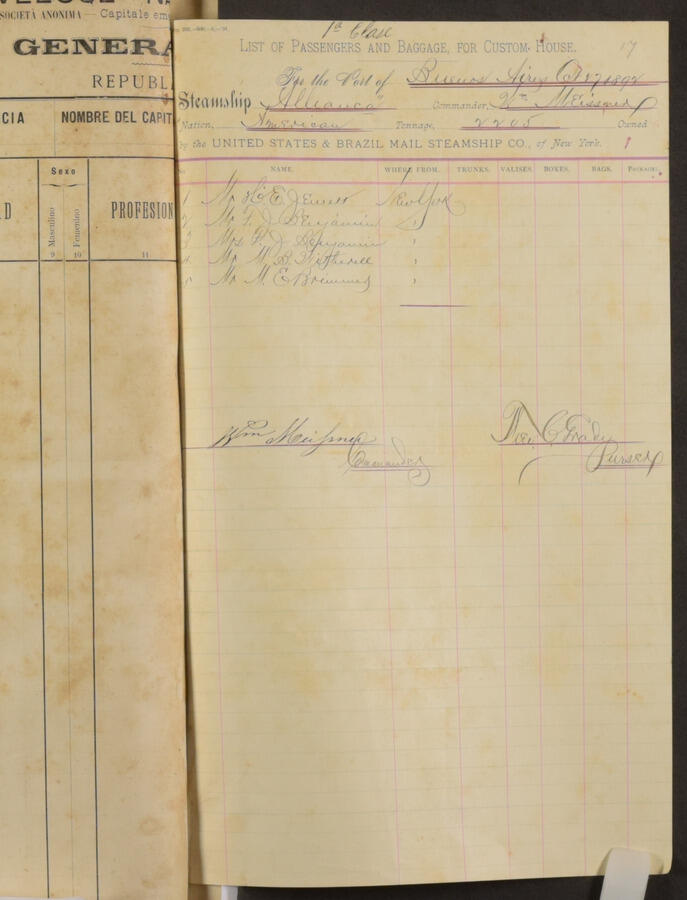 SOCIETÀ ANONIMA — Capitale em
GENERA
REPUBL
CIA
NOMBRE DEL CAPIT
Sexo
D
Masculino
Femenino
PROFESION
9
10
11
1a Clase
LIST OF PASSENGERS AND BAGGAGE, FOR CUSTOM HOUSE.
17
For the Port of Buenos Aires Oct 27 1892
Steamship "Allianca" Commander, Wm Meissner
Nation, American Tonnage, 2205 Owned
by the UNITED STATES & BRAZIL MAIL STEAMSHIP CO., of New York.
NAME. WHERE FROM. TRUNKS. VALISES. BOXES. BAGS. PACKAGES.
1 Mr H E Jewett New York
2 Mr P. J Benjamin "
3 Mrs P. J Benjamin "
4 Mr W B Wetherell "
5 Mr M. E "
Wm Meissner
Commander
Grady
Purser